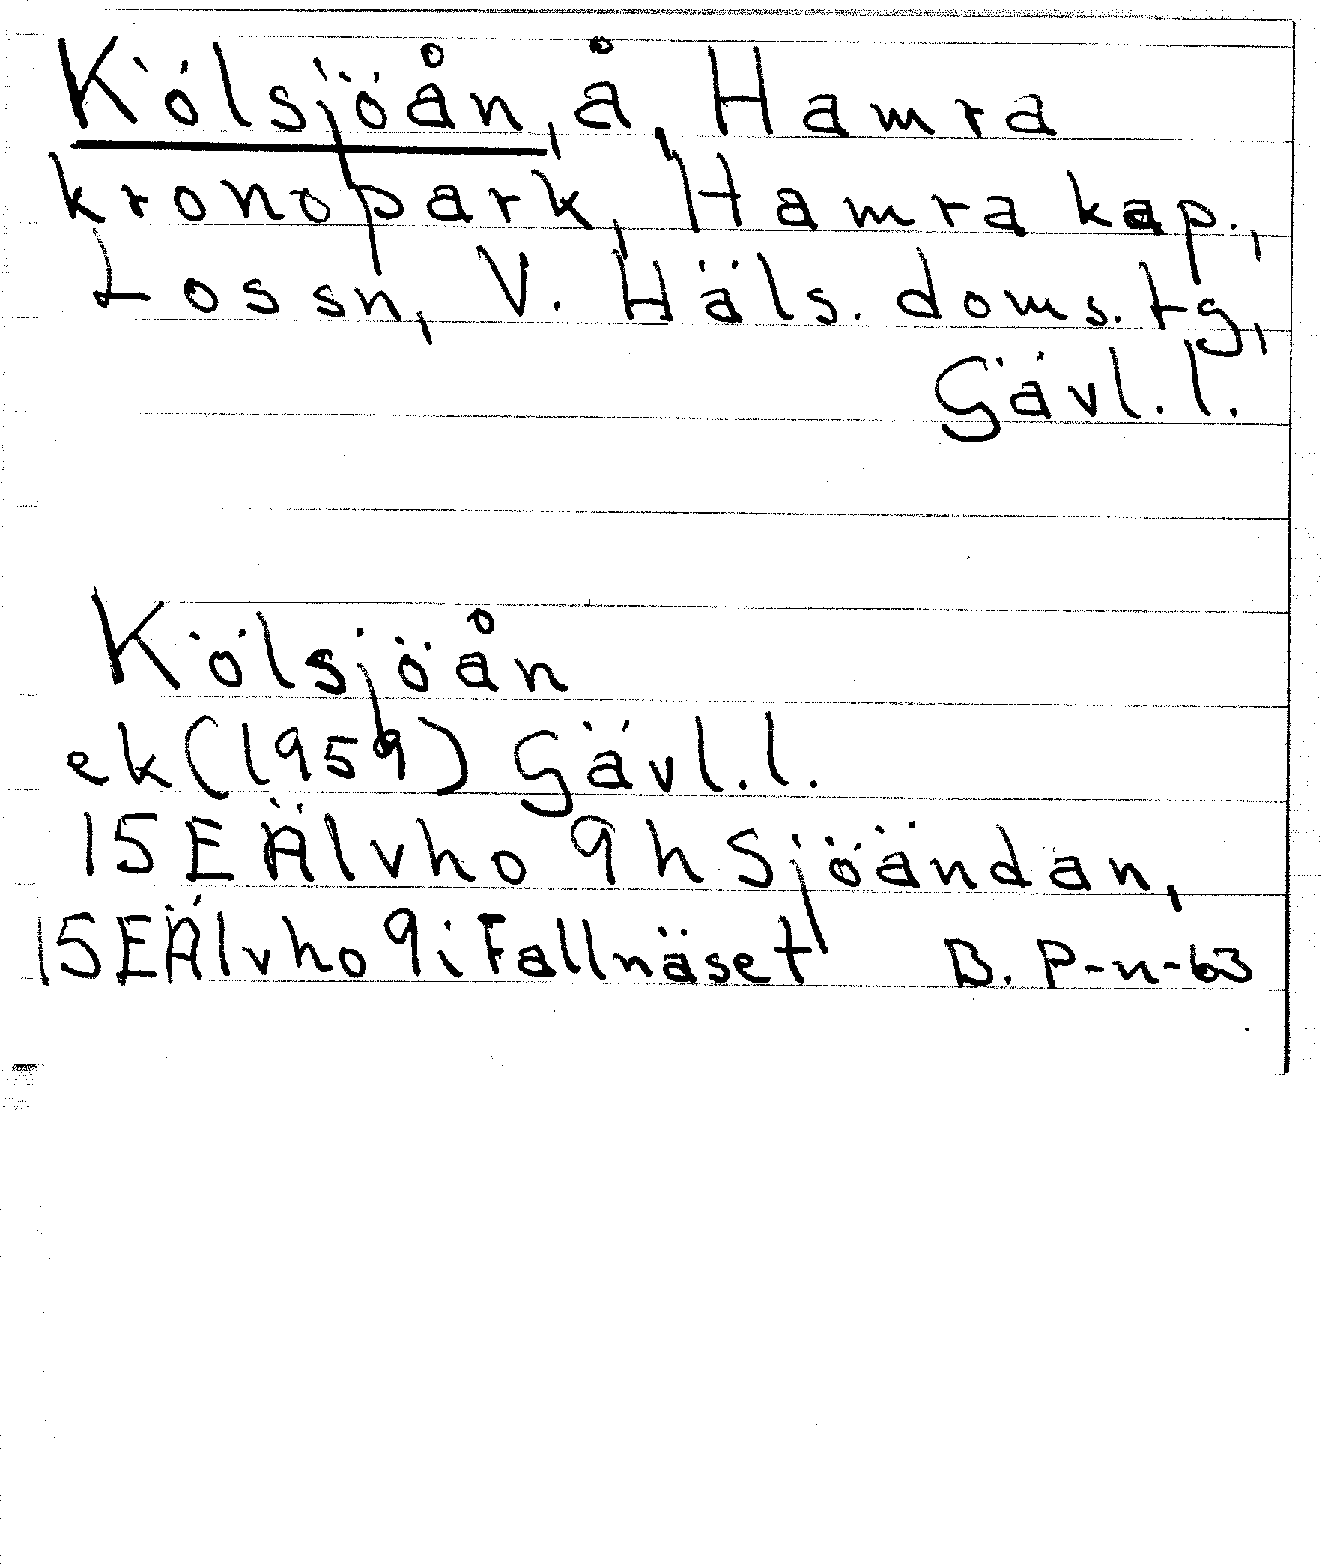 Kölsjöån, å, Hamra
kronopark, Hamra kap.,
Lossn, V. Häls. doms. tg,
Gävl. l.
Kölsjöån
ek (1959) Gävl. l.
15E Älvho 9h Sjöändan,
15E Älvho 9i Fallnäset B. P-n-63